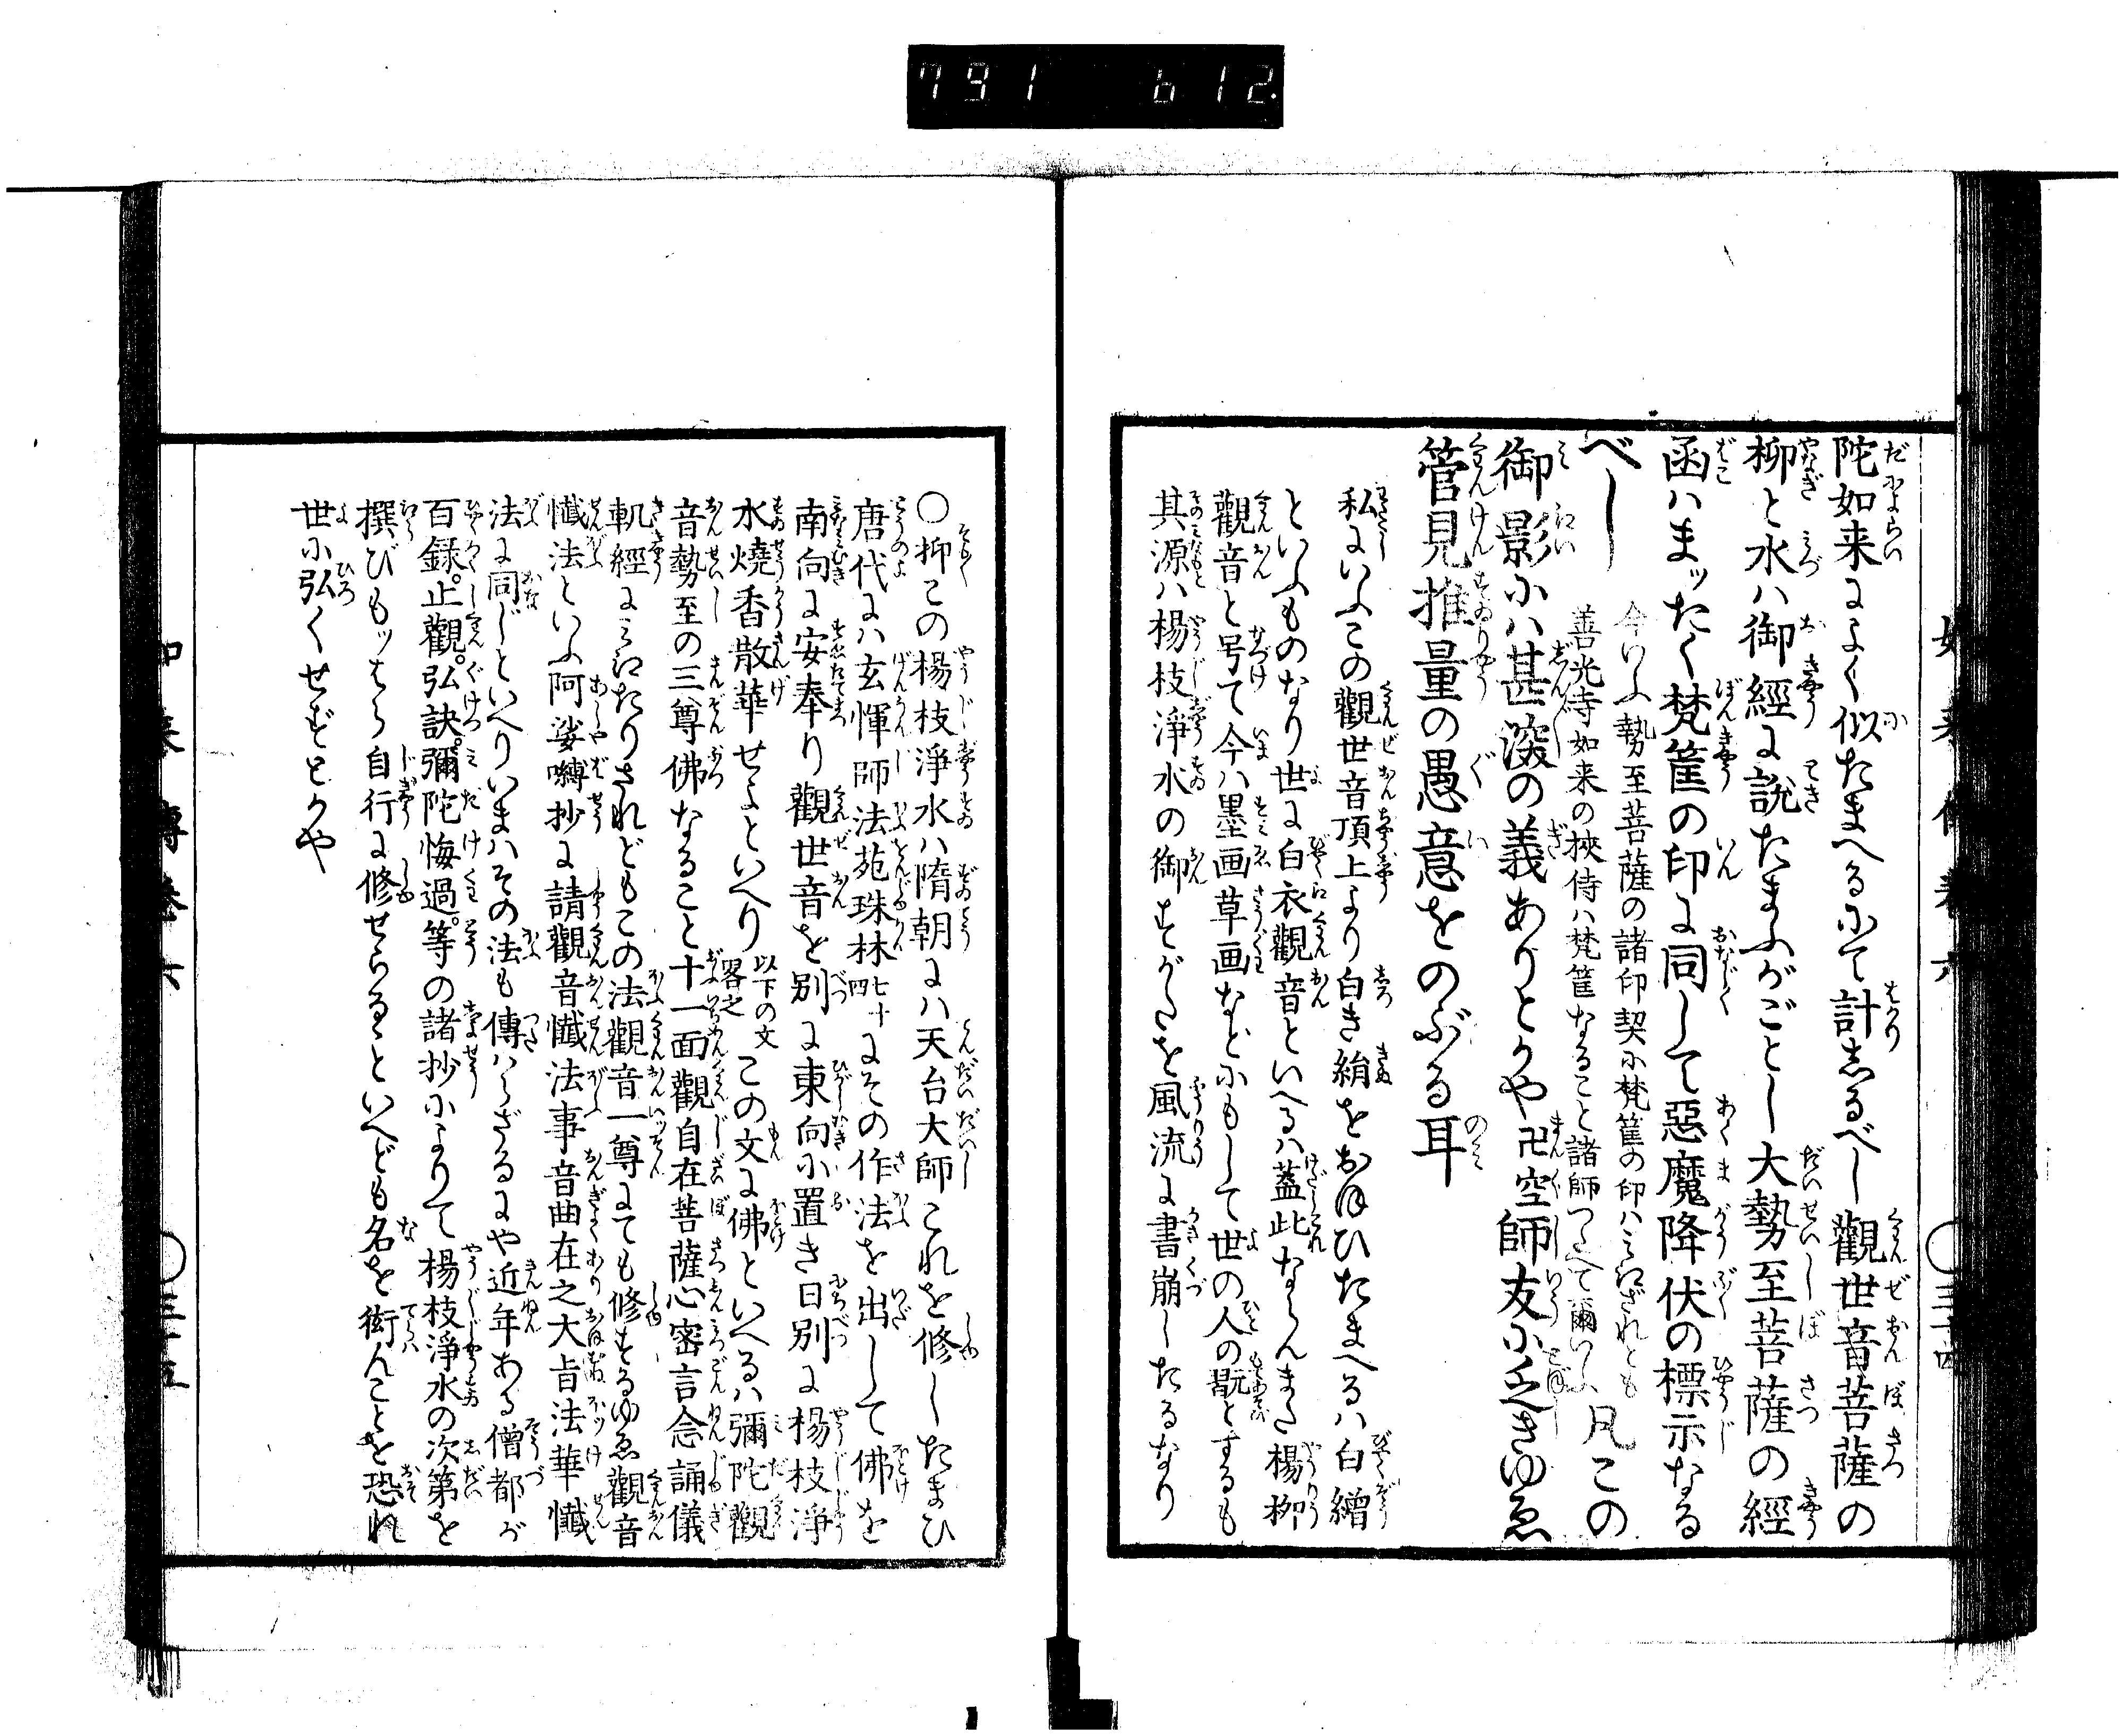 791 612
陀如来によく似たまへるにて計志るべし觀世音菩薩の
柳と水ハ御經に說たまふがごとし大勢至菩薩の經
函ハまッたく梵筐の印に同して惡魔降伏の標示なる
べし
今いふ勢至菩薩の諸印契に梵筐の印ハミえざれとも
善光寺如来の挾侍ハ梵筐なること諸師つたへて爾いふ
凡この
御影にハ甚深の義ありとかや卍空師友に乏きゆゑ
管見推量の愚意をのぶる耳
私にいふこの觀世音頂上より白き絹をおほひたまへるハ白繒
といふものなり世に白衣觀音といへるハ蓋此ならんまた楊柳
觀音と号て今ハ墨画草画などにもして世の人の翫とするも
其源ハ楊枝淨水の御すがたを風流に書崩したるなり
如来傳卷六 〇三十四
〇抑この楊枝淨水ハ隋朝にハ天台大師これを修したまひ
唐代にハ玄惲師法苑珠林七十四にその作法を出して佛を
南向に安奉り觀世音を別に東向に置き日別に楊枝淨
水燒香散華せよといへり以下の文畧之この文に佛といへるハ彌陀觀
音勢至の三尊佛なること十一面觀自在菩薩心密言念誦儀
軌經にミえたりされどもこの法觀音一尊にても修するゆゑ觀音
懺法といふ阿娑嚩抄に請觀音懺法事音曲在之大旨法華懺
法に同じといへりいまハその法も傳ハらざるにや近年ある僧都が
百録。止觀。弘訣。彌陀悔過。等の諸抄によりて楊枝淨水の次第を
撰びもッはら自行に修せらるゝといへども名を衒んことを恐れ
世に弘くせずとかや
如来傳卷六 〇三十五